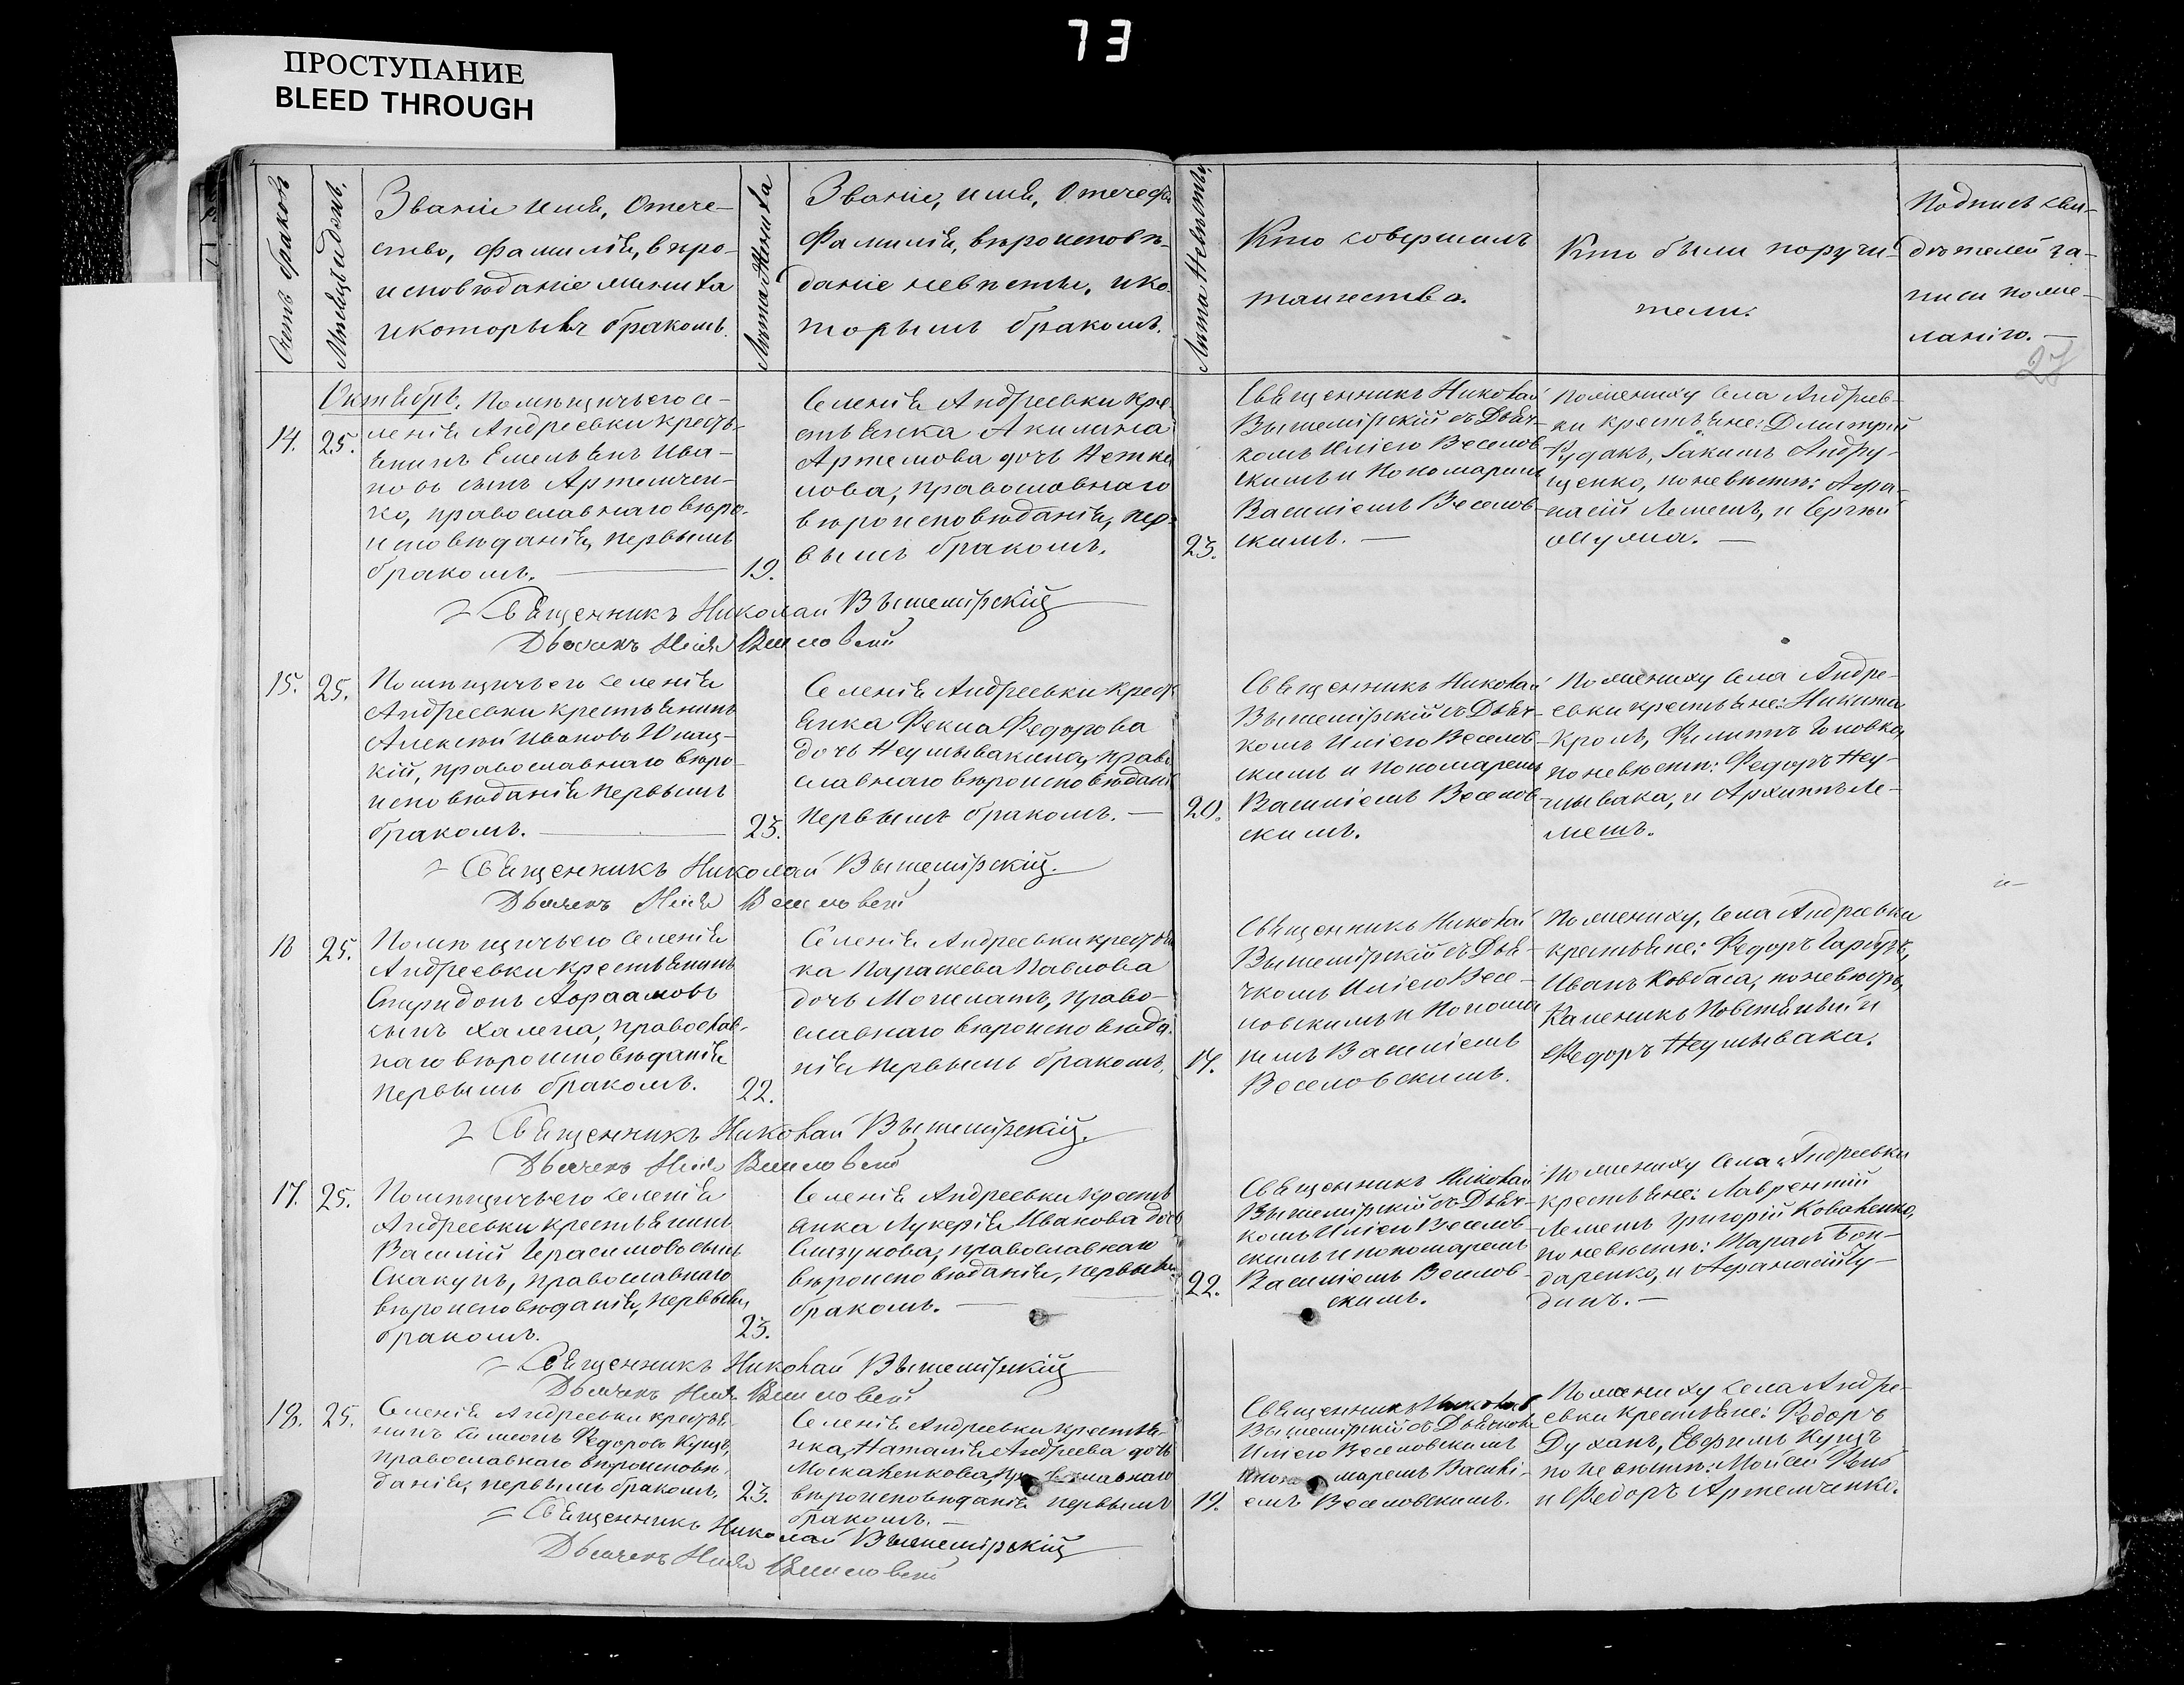 73
ПРОСТУПАНИЕ
BLEED THROUGH
Счетъ браковъ
Мѣсяцъ и день.
Званіе имя, Отече-
ство, фамилія, вѣро-
исповѣданіе жениха
и которымъ бракомъ.
Лѣта Жениха
Званіе, имя, Отечеств
Фамилія, вѣроисповѣ-
даніе невѣсты, и ко-
торымъ бракомъ.
Лѣта Невѣсты,
Кто совершалъ
таинство.
Кто были поручи-
тели.
Подпись сви-
дѣтелей за-
писи по же-
ланію. —
27
Октябрь. Помѣщичьего се-
14. 25. ленія Андреевки кресть-
янинъ Емельянъ Ива-
новъ сынъ Артемчен-
ко, православнаго вѣро-
исповѣданія, первымъ
бракомъ. — 19.
Селенія Андреевки кре-
стьянка Акилина
Артемова дочь
православнаго
вѣроисповѣданія, пер-
вымъ бракомъ.
23.
Священникъ Николай
Вышемірскій съ Дьяч-
комъ Иліею Веселов-
скимъ и Пономаремъ
Василіемъ Веселов-
скимъ. —
По жениху села Андреев-
ки крестьяне: Дмитрій
Рудакъ, Іакимъ Андру-
щенко, по невѣстѣ: Афа-
насій Лемешъ, и Сергѣй
Шулма. —
Священникъ Николай Вышемірскій
Дьячекъ Илія Веселовскій
15. 25. Помѣщичьего селенія
Андреевки крестьянинъ
Алексѣй Ивановъ Юнац-
кій, православнаго вѣро-
исповѣданія первымъ
бракомъ. — 23.
Селенія Андреевки крест
янка Фекла Федорова
дочь Неумывакина, право
славнаго вѣроисповѣдані
первымъ бракомъ. —
20.
Священникъ Николай
Вышемірскій съ Дьяч-
комъ Иліею Веселов-
скимъ и Пономаремъ
Василіемъ Веселов-
скимъ.
По жениху села Андре-
евки крестьяне: Никита
Кроль, Филиппъ Головко,
по невѣстѣ: Федоръ Неу-
мывака, и Архиппъ Ле-
мешъ.
Священникъ Николай Вышемірскій.
Дьячекъ Илія Веселовскій
16 25. Помѣщичьего селенія
Андреевки крестьянинъ
Спиридонъ Авраамовъ
сынъ Халепа, православ-
наго вѣроисповѣданія
первымъ бракомъ. 22.
Селенія Андреевки крестьян
ка Параскева Павлова
дочь Могилатъ, право-
славнаго вѣроисповѣда
нія первымъ бракомъ,
17.
Священникъ Николай
Вышемірскій съ Дья-
чкомъ Иліею Весе-
ловскимъ и Понома
ремъ Василіемъ
Веселовскимъ.
По жениху, села Андреевки
крестьяне: Федоръ Гарбузъ,
Иванъ Ковбаса, по невѣстѣ,
Каленикъ Повстяный и
Федоръ Неумывака.
Священникъ Николай Вышемірскій.
Дьячекъ Илія Веселовскій
17. 25. Помѣщичьего селенія
Андреевки крестьянинъ
Василій Герасимовъ сынъ
Скакунъ, православнаго
вѣроисповѣданія, первымъ
бракомъ. 23.
Селенія Андреевки кресть
янка Лукерія Иванова дочь
Слизунова, православнаго
вѣроисповѣданія, первымъ
бракомъ. —
22.
Священникъ Николай
Вышемірскій съ Дьяч-
комъ Иліею Веселов-
скимъ и пономаремъ
Василіемъ Веселов-
скимъ.
По жениху села Андреевки
крестьяне: Лаврентій
Лемешъ Григорій Коваленко,
по невѣстѣ: Тарасъ Бон-
даренко, и Афанасій Гу-
динъ. —
Священникъ Николай Вышемірскій
Дьячекъ Илія Веселовскій
18. 25. Селенія Андреевки крестья-
нинъ Симеонъ Федоровъ Куцъ,
православнаго вѣроисповѣ-
данія, первымъ бракомъ, 23.
Селенія Андреевки крестья-
нка, Наталія Андреева дочь
Москаленкова, православнаго
вѣроисповѣданія первымъ
бракомъ. —
19.
Священникъ Николай
Вышемірскій съ Дьячкомъ
Иліею Веселовскимъ
и пономаремъ Василі-
емъ Веселовскимъ.
По жениху села Андре-
евки крестьяне: Федоръ
Духанъ, Евфимъ Куцъ
по невѣстѣ: Мойсей
и Федоръ Артемченко.
Священникъ Николай Вышемірскій
Дьячекъ Илія Веселовскій